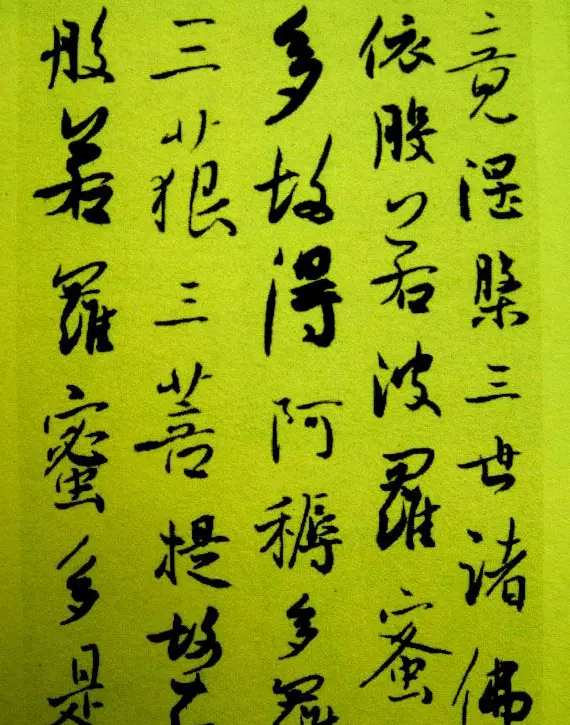 竟涅槃三世諸佛
依般若波羅蜜
多故得阿耨多羅
三藐三菩提故
般若羅蜜多是